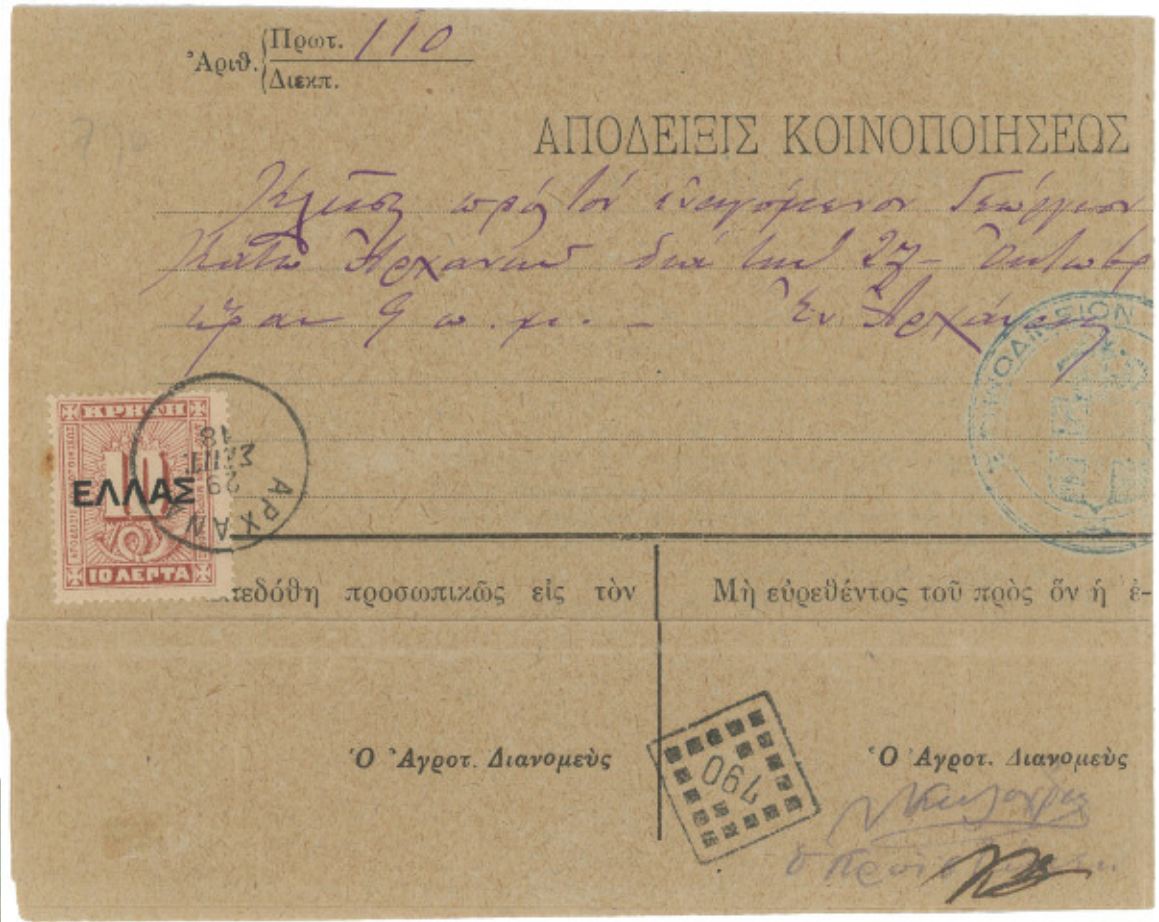 Ἀριθ. Πρωτ. 110
Διεκπ.
ΑΠΟΔΕΙΞΙΣ ΚΟΙΝΟΠΟΙΗΣΕΩΣ
Κλῆσις πρὸς τὸν ἐναγόμενον Γεώργιον
Κάτω Ἀρχανῶν διὰ τὴν 27 Ὀκτωβρ
ὥραν 9 π.μ. – Ἐν Ἀρχάναις
ΕΙΡΗΝΟΔΙΚΕΙΟΝ
ΚΡΗΤΗ
10
ΕΛΛΑΣ
10 ΛΕΠΤΑ
ΑΡΧΑΝ
29
ΣΕΠΤ
18
τεδόθη προσωπικῶς εἰς τὸν
Μὴ εὑρεθέντος τοῦ πρὸς ὅν ἡ ἐ-
790
Ὁ Ἀγροτ. Διανομεὺς
Ὁ Ἀγροτ. Διανομεὺς